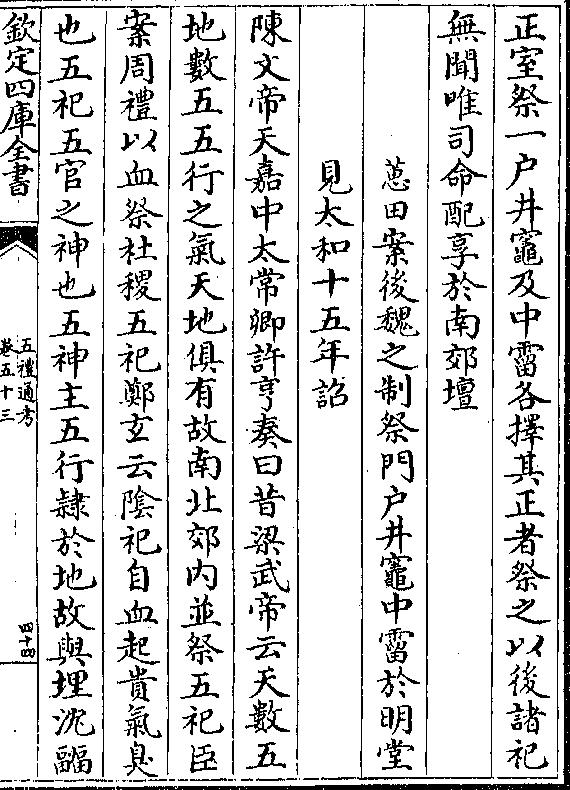 正室祭一户井竈及中霤各擇其正者祭之以後諸祀
無聞唯司命配享於南郊壇
蕙田案後魏之制祭門户井竈中霤於明堂
見太和十五年詔
陳文帝天嘉中太常卿許亨奏曰昔梁武帝云天數五
地數五五行之氣天地俱有故南北郊内並祭五祀臣
案周禮以血祭社稷五祀鄭玄云陰祀自血起貴氣臭
也五祀五官之神也五神主五行隷於地故與埋沈疈
欽定四庫全書
五禮通考
卷五十三
四十四